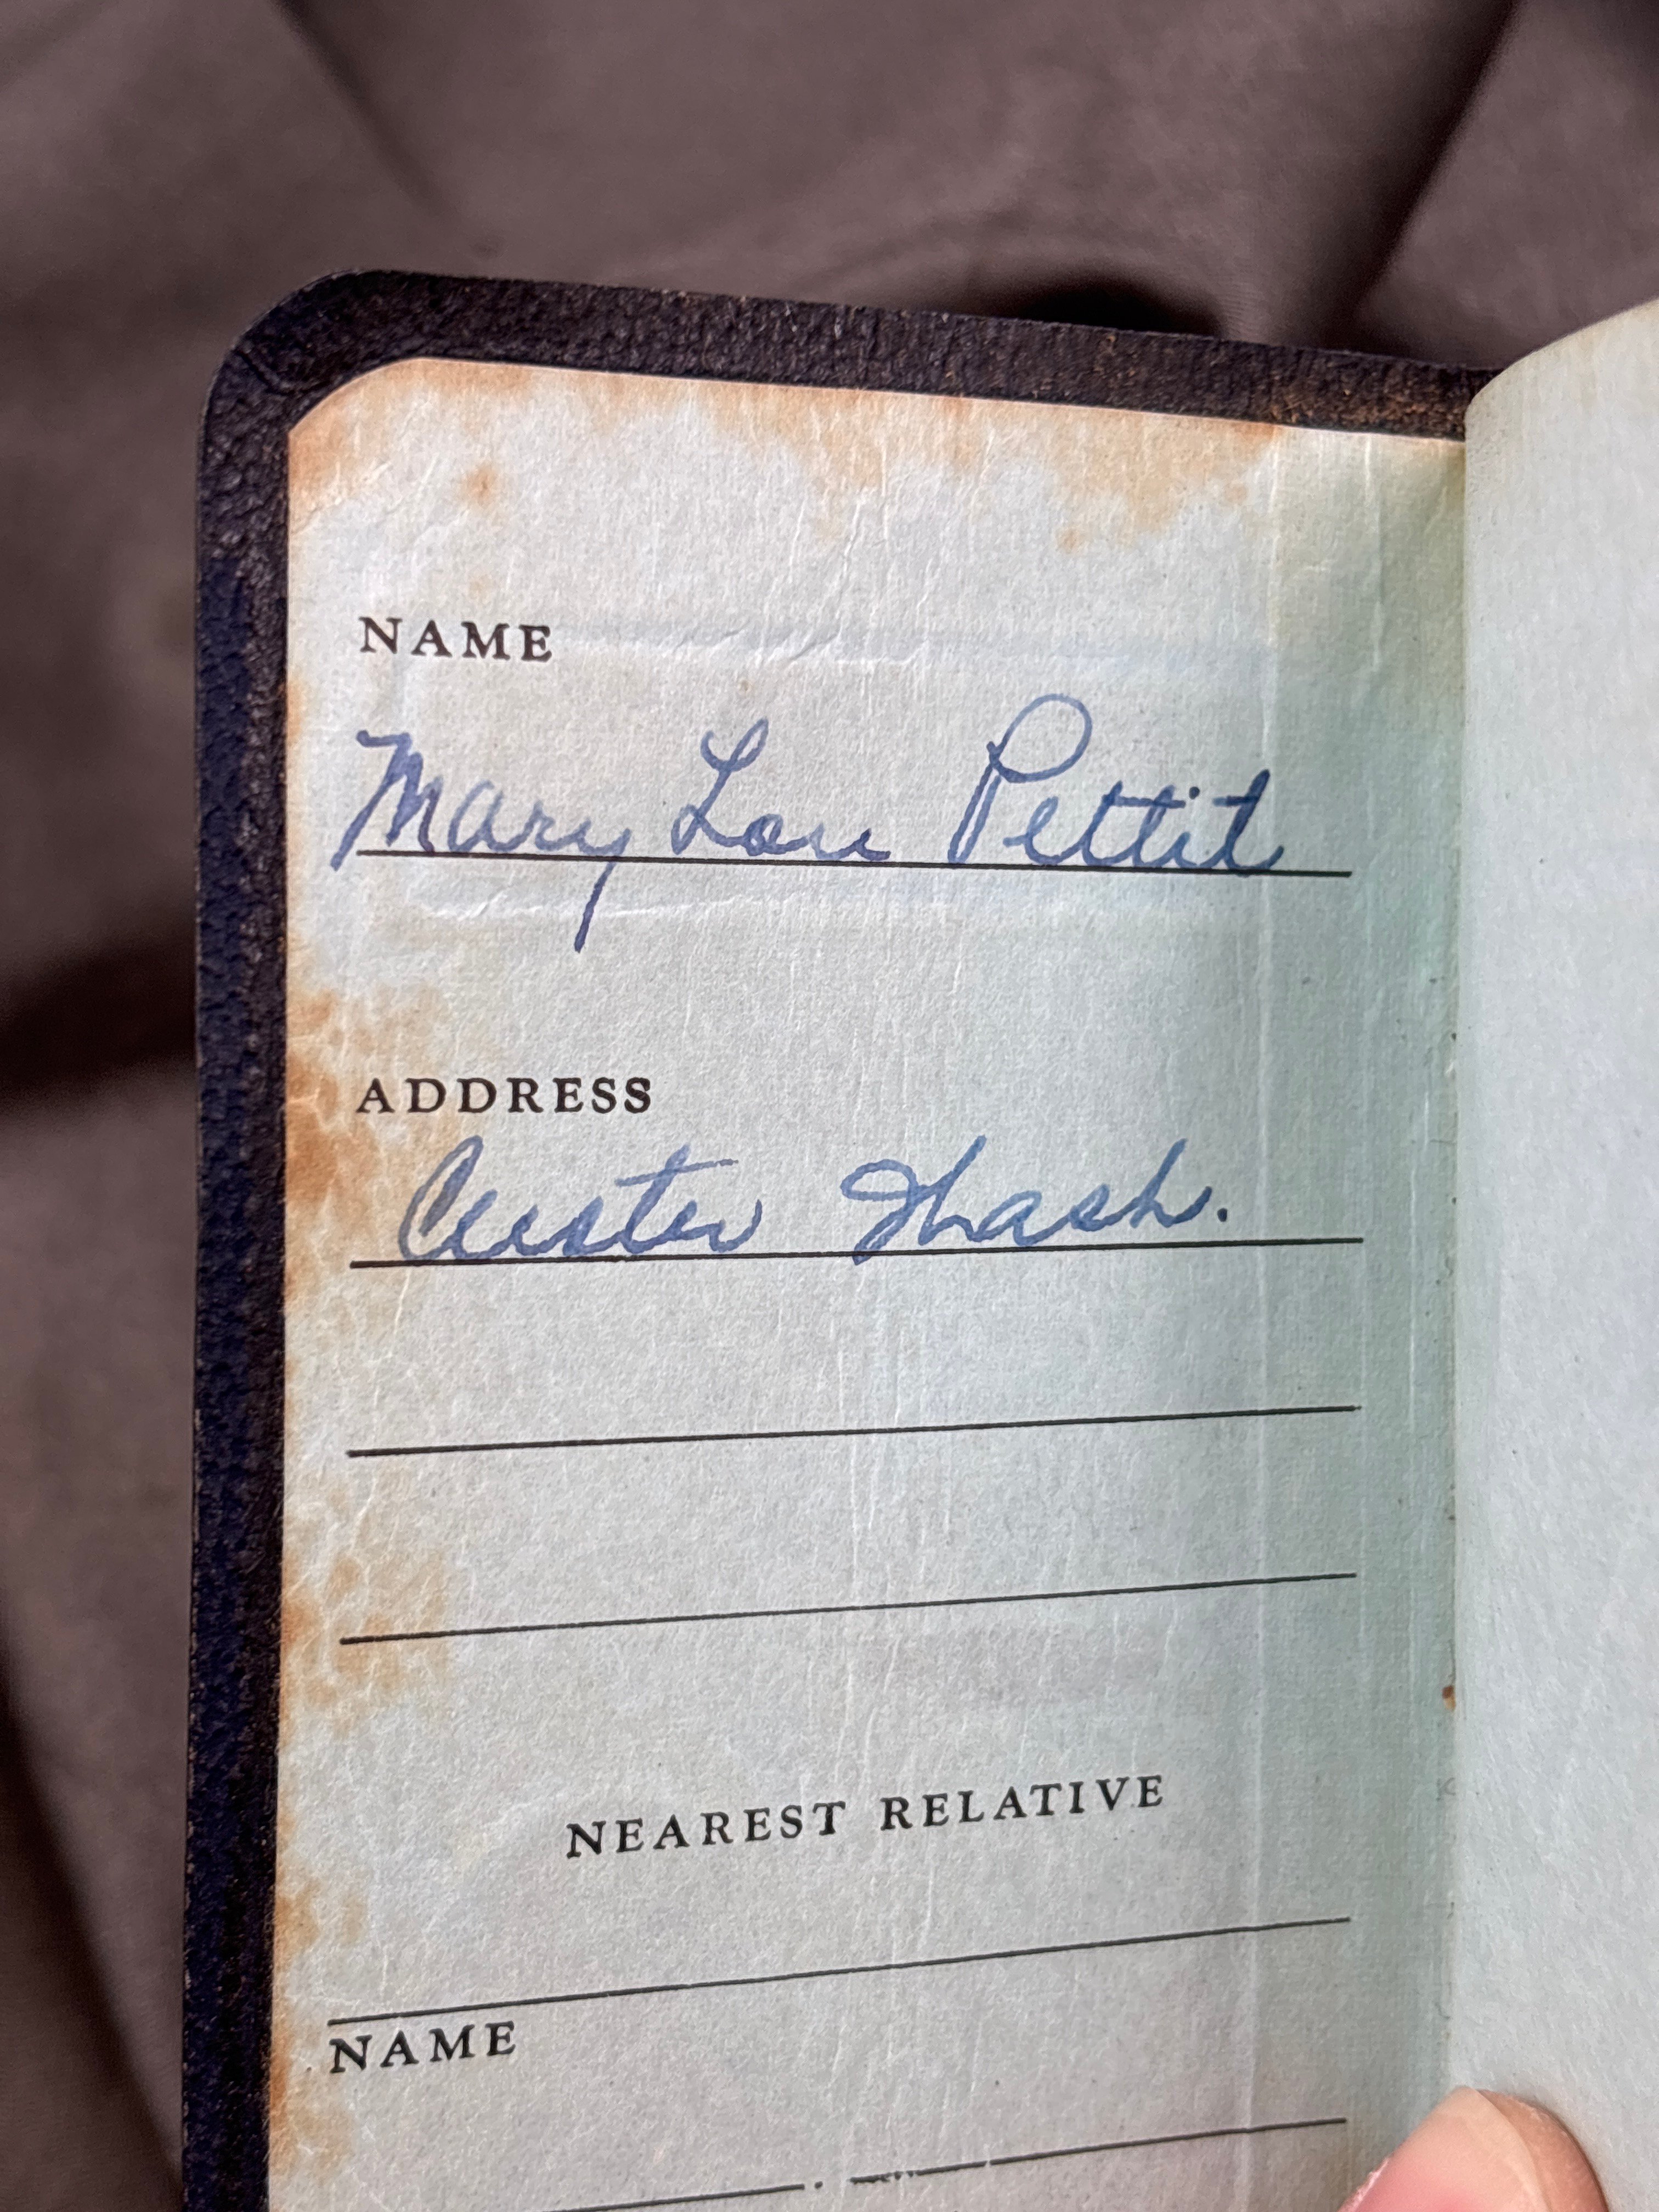 NAME
Mary Lou Pettit
ADDRESS
Custer Wash.
NEAREST RELATIVE
NAME